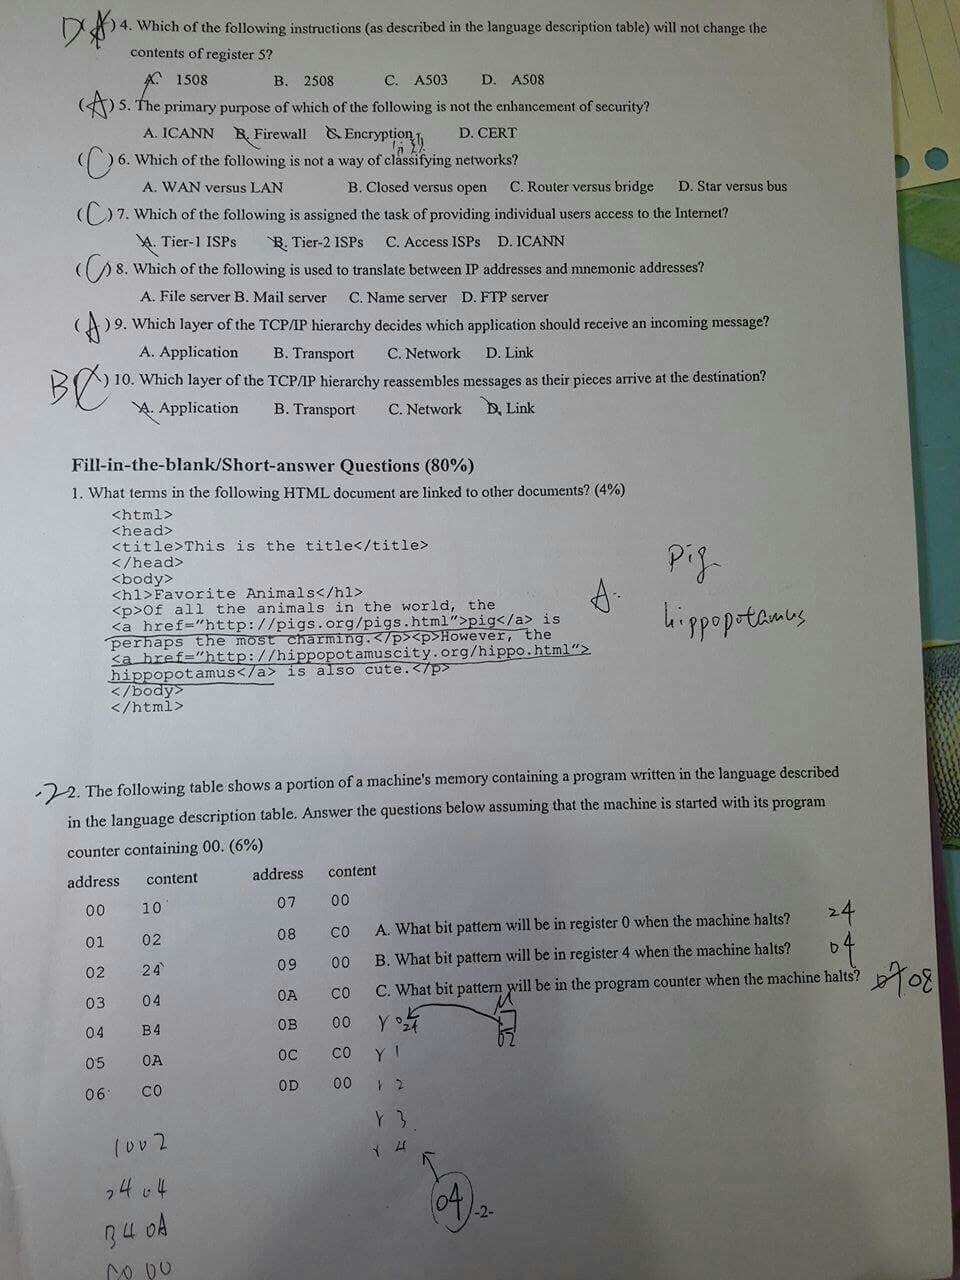 DA) 4. Which of the following instructions (as described in the language description table) will not change the
contents of register 5?
A. 1508 B. 2508 C. A503 D. A508
(A) 5. The primary purpose of which of the following is not the enhancement of security?
A. ICANN B. Firewall C. Encryption D. CERT
(C) 6. Which of the following is not a way of classifying networks?
A. WAN versus LAN B. Closed versus open C. Router versus bridge D. Star versus bus
(C) 7. Which of the following is assigned the task of providing individual users access to the Internet?
A. Tier-1 ISPs B. Tier-2 ISPs C. Access ISPs D. ICANN
(C) 8. Which of the following is used to translate between IP addresses and mnemonic addresses?
A. File server B. Mail server C. Name server D. FTP server
(A) 9. Which layer of the TCP/IP hierarchy decides which application should receive an incoming message?
A. Application B. Transport C. Network D. Link
B(C) 10. Which layer of the TCP/IP hierarchy reassembles messages as their pieces arrive at the destination?
A. Application B. Transport C. Network D. Link
Fill-in-the-blank/Short-answer Questions (80%)
1. What terms in the following HTML document are linked to other documents? (4%)
<html>
<head>
<title>This is the title</title>
</head>
<body>
<h1>Favorite Animals</h1>
<p>Of all the animals in the world, the
<a href="http://pigs.org/pigs.html">pig</a> is
perhaps the most charming.</p><p>However, the
<a href="http://hippopotamuscity.org/hippo.html">
hippopotamus</a> is also cute.</p>
</body>
</html>
A: pig
hippopotamus
-2 2. The following table shows a portion of a machine's memory containing a program written in the language described
in the language description table. Answer the questions below assuming that the machine is started with its program
counter containing 00. (6%)
address content address content
00 10 07 00
01 02 08 C0 A. What bit pattern will be in register 0 when the machine halts? 24
02 24 09 00 B. What bit pattern will be in register 4 when the machine halts? 04
03 04 0A C0 C. What bit pattern will be in the program counter when the machine halts? 07 08
04 B4 0B 00 Y 0 24 M 02
05 0A 0C C0 Y 1
06 C0 0D 00 Y 2
Y 3
Y 4
1002
2404
B40A
C000
04
-2-